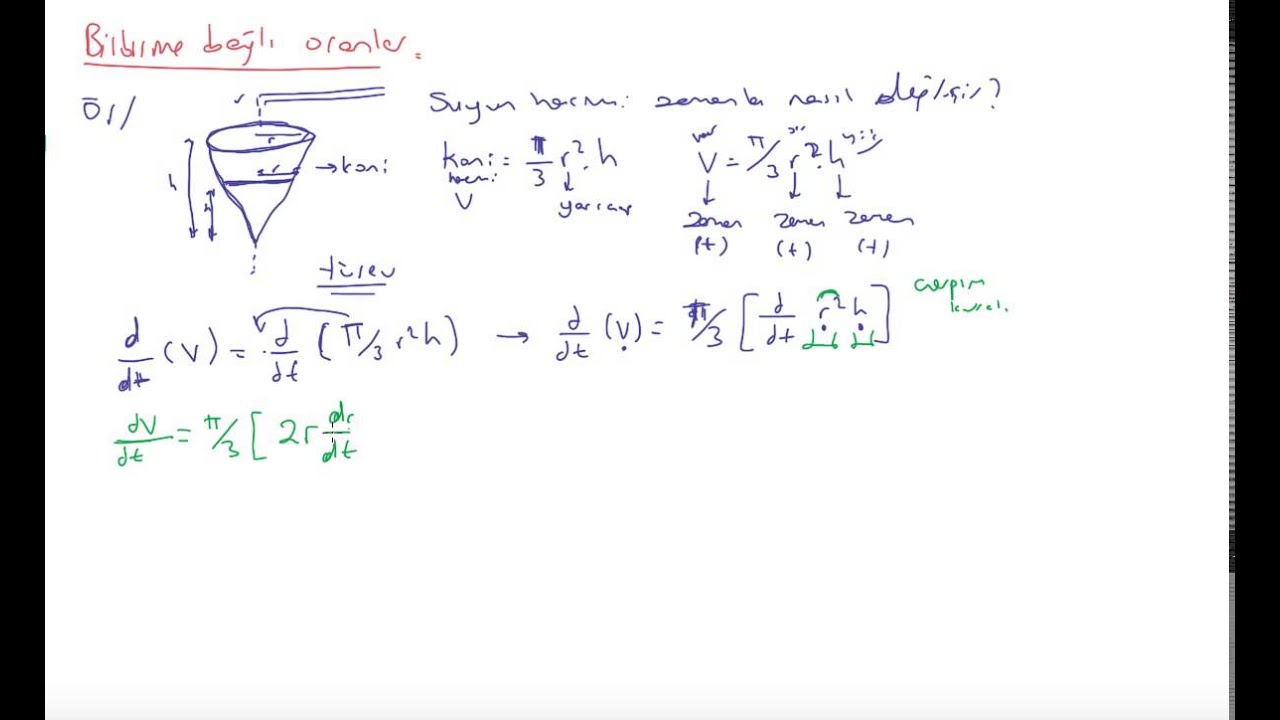 Birbirine bağlı oranlar.
Ör/
Suyun hacmi zamanla nasıl değişir?
r
r
h
h
→ koni
koni = π/3 r² . h
hacmi
V
yarıçap
V = π/3 r² . h
zaman zaman zaman
(t) (t) (t)
türev
d/dt (V) = d/dt (π/3 r²h) → d/dt (V) = π/3 [d/dt r² h]
çarpım
kuralı.
dV/dt = π/3 [ 2r dr/dt